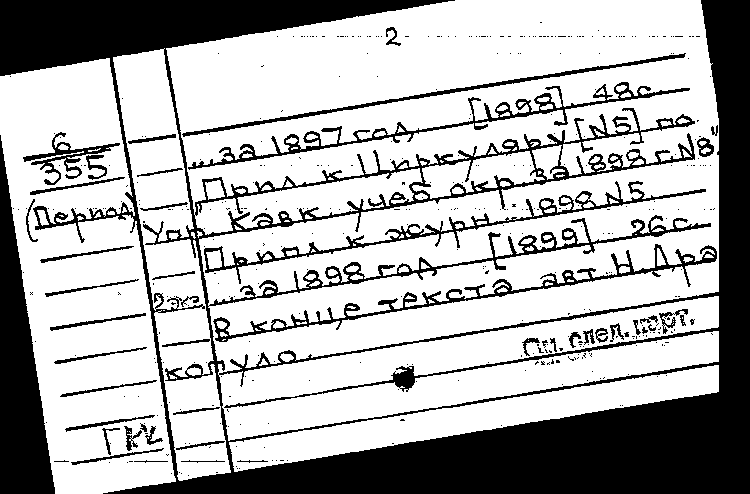 2
6
355
(Период)
...за 1897 год [1898]. 48с.
"Прил. к Циркуляру [N5] по
Упр. Кавк. учеб. окр. за 1898 г. N8".
Прил. к журн... 1898 N5.
2 экз. ...за 1898 год [1899] 26с.
В конце текста авт. Н. Дра
копуло.
См. след. карт.